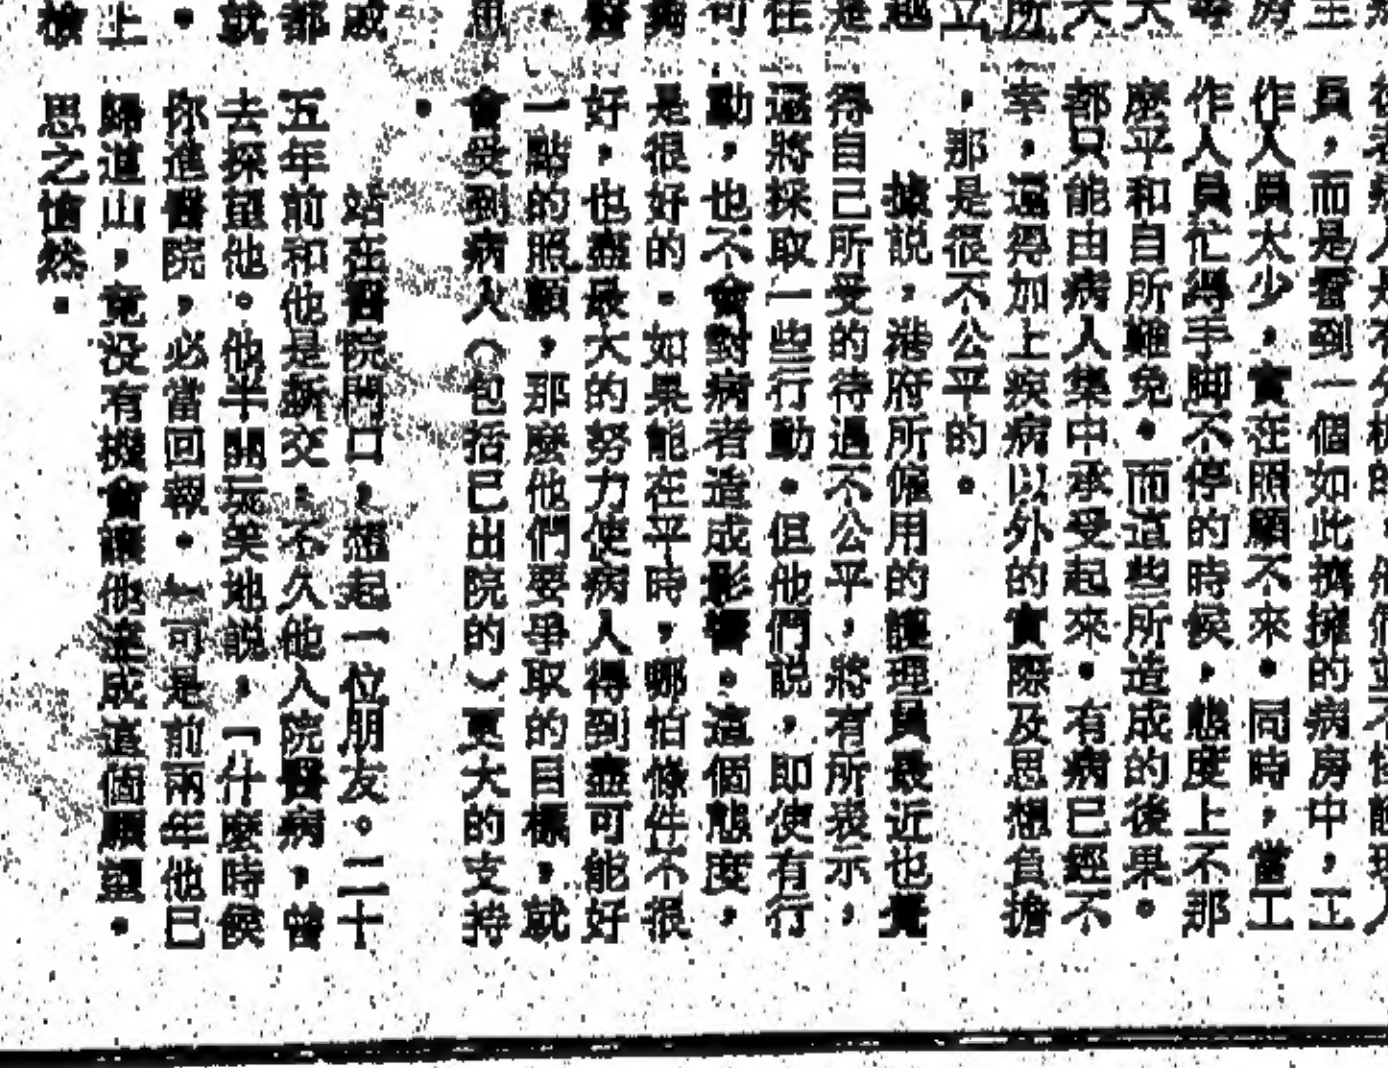 員,而是看到一個如此擠擁的病房中,工
作人員太少,實在照顧不來。同時,當工
作人員忙得手脚不停的時候,態度上不那
麼平和自所難免。而這些所造成的後果。
都只能由病人集中承受起來。有病已經不
幸,還得加上疾病以外的實際及思想負擔
,那是很不公平的。
據説,港府所僱用的護理員最近也覺
得自己所受的待遇不公平,將有所表示,
還將採取一些行動。但他們説,即使有行
動,也不會對病者造成影響。這個態度,
是很好的。如果能在平時,哪怕條件不很
好,也盡最大的努力使病人得到盡可能好
一點的照顧,那麼他們要爭取的目標,就
會受到病人(包括已出院的)更大的支持
。
站在醫院門口,想起一位朋友。二十
五年前和他是新交,不久他入院醫病,曾
去探望他。他半開玩笑地説,「什麼時候
你進醫院,必當回報。」可是前兩年他已
歸道山,竟没有機會讓他達成這個願望。
思之愴然。